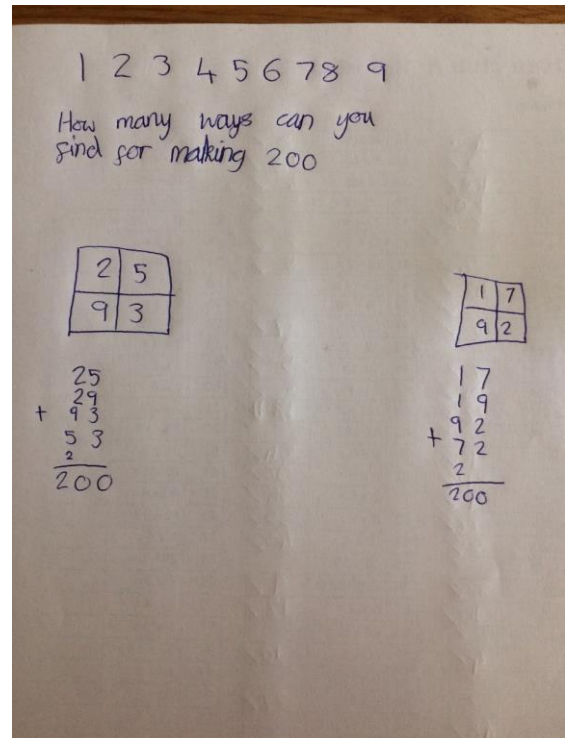 1 2 3 4 5 6 7 8 9
How many ways can you
find for making 200
2 5
9 3
25
29
+ 93
53
2
200
1 7
9 2
17
19
92
+ 72
2
200